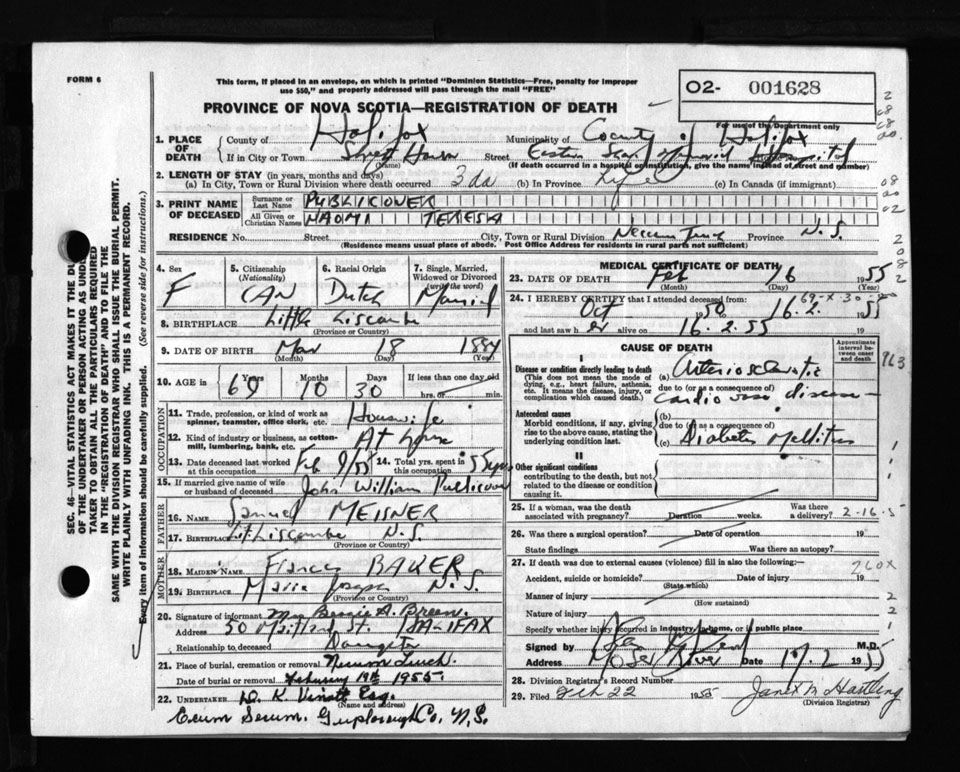 FORM 6
This form, if placed in an envelope, on which is printed "Dominion Statistics—Free, penalty for improper
use $50," and properly addressed will pass through the mail "FREE"
PROVINCE OF NOVA SCOTIA—REGISTRATION OF DEATH
O2- 001628
For use of the Department only
1. PLACE OF DEATH
County of Halifax
Municipality of County of Halifax
If in City or Town
(Name)
Street Eastern Memorial Hospital
(If death occurred in a hospital or institution, give the name instead of street and number)
2. LENGTH OF STAY (in years, months and days)
(a) In City, Town or Rural Division where death occurred 3 da (b) In Province Life (c) In Canada (if immigrant)
3. PRINT NAME OF DECEASED
Surname or Last Name PUBLICOVER
All Given or Christian Names NAOMI TERESA
RESIDENCE No. Street City, Town or Rural Division Necum Teuch Province N.S.
(Residence means usual place of abode. Post Office Address for residents in rural parts not sufficient)
4. Sex F
5. Citizenship (Nationality) CAN
6. Racial Origin Dutch
7. Single, Married, Widowed or Divorced (write the word) Married
8. BIRTHPLACE Little Liscombe
(Province or Country)
9. DATE OF BIRTH Mar 18 1884
(Month) (Day) (Year)
10. AGE in 69 Years 10 Months 30 Days If less than one day hrs. or min.
OCCUPATION
11. Trade, profession, or kind of work as spinner, teamster, office clerk, etc. Housewife
12. Kind of industry or business, as cotton-mill, lumbering, bank, etc. At home
13. Date deceased last worked at this occupation Feb 9/55
14. Total yrs. spent in this occupation 55 yrs
15. If married give name of wife or husband of deceased John William Publicover
FATHER
16. NAME Samuel MEISNER
17. BIRTHPLACE Lit Liscombe N.S.
(Province or Country)
MOTHER
18. MAIDEN NAME BAKER
19. BIRTHPLACE Marie Joseph N.S.
(Province or Country)
20. Signature of informant Mrs Bessie A. Breen.
Address 50 Maitland St. HALIFAX
Relationship to deceased Daughter
21. Place of burial, cremation or removal Necum Teuch.
Date of burial or removal February 19th 1955.
22. UNDERTAKER D. K. Esq.
(Name and address)
Ecum Secum. Guysborough Co. N.S.
MEDICAL CERTIFICATE OF DEATH
23. DATE OF DEATH Feb 16 1955
(Month) (Day)
24. I HEREBY CERTIFY that I attended deceased from:
Oct 1950 to 16.2. 1955
and last saw her alive on 16.2.55 19
CAUSE OF DEATH
Approximate interval between onset and death
I
Disease or condition directly leading to death
(This does not mean the mode of dying, e.g., heart failure, asthenia, etc. It means the disease, injury, or complication which caused death.)
(a) Arteriosclerotic
due to (or as a consequence of)
cardiovasc disease
Antecedent causes
Morbid conditions, if any, giving rise to the above cause, stating the underlying condition last.
(b)
due to (or as a consequence of)
(c) Diabetes Mellitus
II
Other significant conditions
contributing to the death, but not related to the disease or condition causing it.
25. If a woman, was the death associated with pregnancy? Duration weeks. Was there a delivery?
2-16-5
26. Was there a surgical operation? Date of operation 19
State findings Was there an autopsy?
27. If death was due to external causes (violence) fill in also the following:—
Accident, suicide or homicide? Date of injury 19
(State which)
260X
Manner of injury
(How sustained)
Nature of injury
Specify whether injury occurred in industry, in home, or in public place
Signed by M.D.
Address Moser River Date 17.2 1955
28. Division Registrar's Record Number
29. Filed Feb 22 1955 Janet M Hartling
(Division Registrar)
SEC. 46—VITAL STATISTICS ACT MAKES IT THE DU
OF THE UNDERTAKER OR PERSON ACTING AS UNDER
TAKER TO OBTAIN ALL THE PARTICULARS REQUIRED
IN THE "REGISTRATION OF DEATH" AND TO FILE THE
SAME WITH THE DIVISION REGISTRAR WHO SHALL ISSUE THE BURIAL PERMIT.
WRITE PLAINLY WITH UNFADING INK. THIS IS A PERMANENT RECORD.
Every item of information should be carefully supplied. (See reverse side for instructions.)